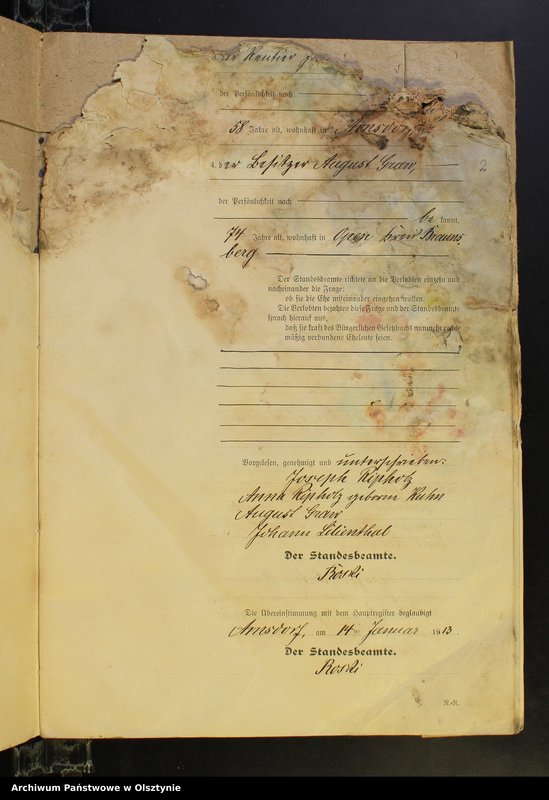 der Rentier
der Persönlichkeit nach
58 Jahre alt, wohnhaft in Arnsdorf
4. der Besitzer August Graw,
2
der Persönlichkeit nach
be kannt,
74 Jahre alt, wohnhaft in Open Kreis Brauns
berg
Der Standesbeamte richtete an die Verlobten einzeln und
nacheinander die Frage:
ob sie die Ehe miteinander eingehen wollen.
Die Verlobten bejahten diese Frage und der Standesbeamte
sprach hierauf aus,
daß sie kraft des Bürgerlichen Gesetzbuchs nunmehr recht-
mäßig verbundene Eheleute seien.
Vorgelesen, genehmigt und unterschrieben:
Joseph Kipholz
Anna Kipholz geborene Kuhn
August Graw
Johann Lilienthal
Der Standesbeamte.
Roski
Die Übereinstimmung mit dem Hauptregister beglaubigt
Arnsdorf, am 14ten Januar 1913.
Der Standesbeamte.
Roski
N.-R.
Archiwum Państwowe w Olsztynie